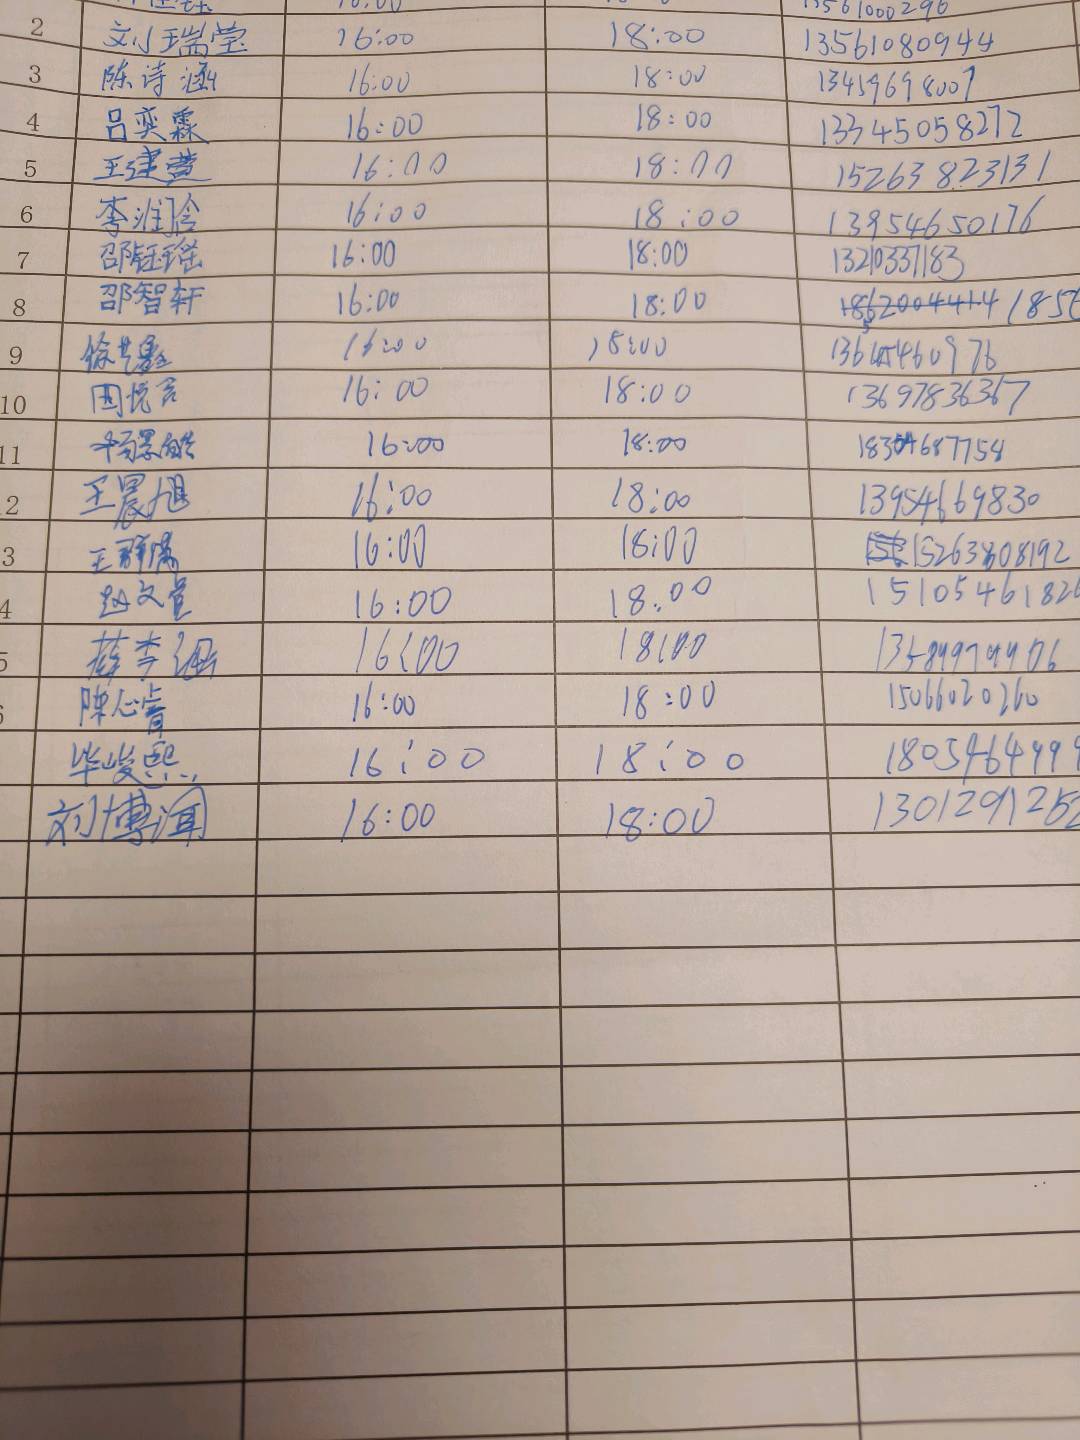 16:00 13561000296
2 刘瑞莹 16:00 18:00 13561080944
3 陈诗涵 16:00 18:00 13419698007
4 吕奕霖 16:00 18:00 13345058272
5 王建营 16:00 18:00 15263823131
6 李润含 16:00 18:00 13954650176
7 邵钰瑶 16:00 18:00 13210337183
8 邵智轩 16:00 18:00
9 16:00 18:00
10 16:00 18:00 13697836367
11 16:00 18:00 18304687758
2 王晨旭 16:00 18:00 13954669830
3 王 16:00 18:00 15263808192
4 赵文萱 16:00 18:00 1510546182
5 薛李涵 16:00 18:00
陈心睿 16:00 18:00 15066020260
毕峻熙 16:00 18:00 1805464999
刘博洱 16:00 18:00 1301291252